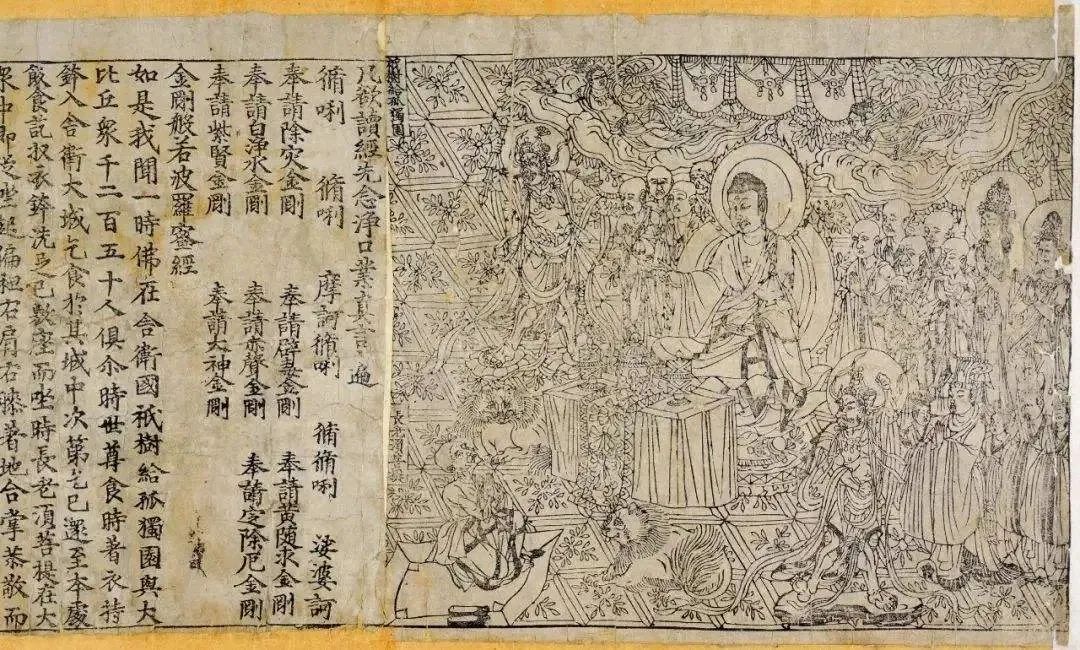 祇樹給孤獨園
長老須菩提
凡欲讀經先念淨口業真言一遍
脩唎 脩唎 摩訶脩唎 脩脩唎 娑婆訶
奉請除灾金剛 奉請辟毒金剛 奉請黃随求金剛
奉請白淨水金剛 奉請赤聲金剛 奉請定除厄金剛
奉請紫賢金剛 奉請大神金剛
金剛般若波羅蜜經
如是我聞一時佛在舍衛國祇樹給孤獨園與大
比丘衆千二百五十人俱尒時世尊食時著衣持
鉢入舍衛大城乞食於其城中次第乞已還至本處
飯食訖收衣鉢洗足已敷座而坐時長老須菩提在大
衆中即從座起偏袒右肩右膝著地合掌恭敬而